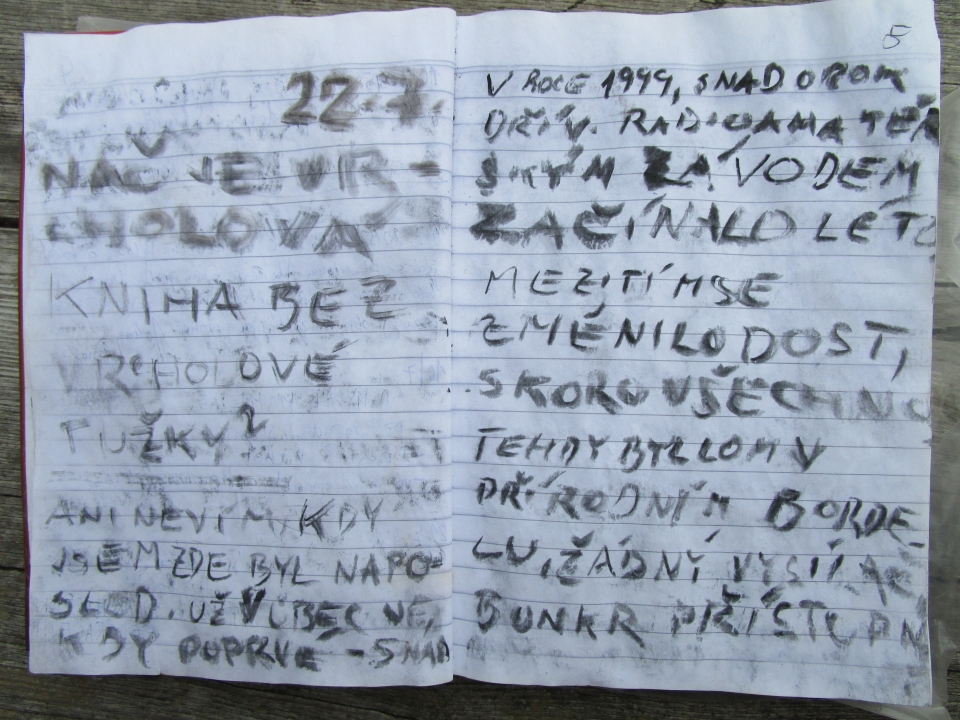 22.7.
NAČ JE VR-
CHOLOVÁ
KNIHA BEZ
VRCHOLOVÉ
TUŽKY?
ANI NEVÍM, KDY
JSEM ZDE BYL NAPO-
SLED. UŽ VŮBEC NE,
KDY POPRVÉ - SNAD
5
V ROCE 1999, SNAD O ROK
DŘÍV. RADIOAMATÉR
SKÝM ZÁVODEM
ZAČÍNALO LÉTO
MEZITÍM SE
ZMĚNILO DOST,
SKORO VŠECHNO
TEHDY BYL LOM V
PŘÍRODNÍM BORDE
LU, ŽÁDNÝ VYSÍLAČ
BUNKR PŘÍSTUPN